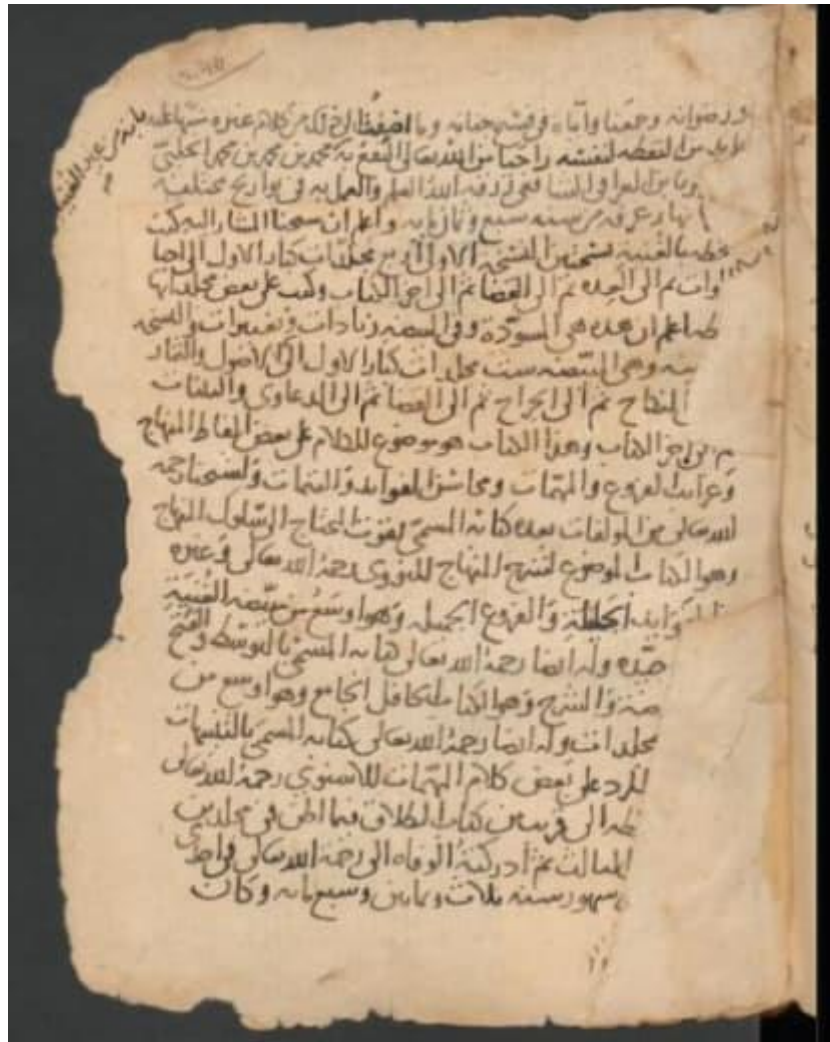 ورضوانه وجمعنا واياه في فسيح جناته وما اضيف الى ذلك من كلام غيره
من النقطه لنفسه راجيا من الله تعالى النفع به محمد بن محمد بن محمد الحلبي
الشافعي رزقه الله العلم والعمل به في تواريخ مختلفة
سنه سبع وثمان مايه واعلم ان شيخنا المشار اليه كتب
بخطه بالغنية نسختين النسخه الاولى اربع مجلدات كان الاول الى احيا
الموات ثم الى العدد ثم الى القضا ثم الى اخر الكتاب وكتب على بعض مجلداتها
اعلم ان هذه هي المسودة وفي المبيضه زيادات وتغييرات والنسخه
وهي المبيضه ست مجلدات كان الاول الى
النكاح ثم الى الجراح ثم الى القضا ثم الى الدعاوى والبينات
ثم الى اخر الكتاب وهذا الكتاب هو موضوع للكلام على بعض الفاظ المنهاج
وغرائب الفروع والمهمات ومحاسن الفوايد والتتمات ولشيخنا رحمه
الله تعالى من المولفات بعده كتابه المسمى بقوت المحتاج الى سلوك المنهاج
وهو الكتاب الموضوع لشرح المنهاج للنووي رحمة الله تعالى وغيره
الجليلة والفروع الجميله وهو اوسع من مبيضه الغنية
وله ايضا رحمة الله تعالى كتابه المسمى بالتوسط والفتح
بين الروضة والشرح وهو الكتاب الكافل الجامع وهو اوسع من
مجلدات وله ايضا رحمة الله تعالى كتابه المسمى بالتنبيهات
للرد على بعض كلام المهمات للاسنوي رحمة الله تعالى
الى قريب من كتاب الطلاق فيما اظن في مجلدين
الثالث ثم ادركته الوفاه الى رحمة الله تعالى في احد
شهور سنه ثلاث وثمانين وسبع مايه وكان